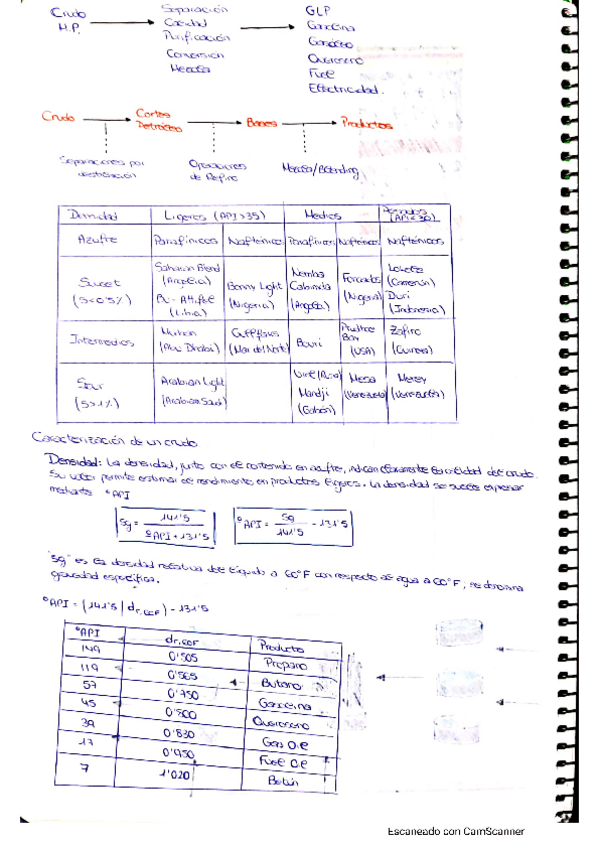 Crudo
M.P.
Separación
Calidad
Purificación
Conversion
Mezcla
GLP
Gasolina
Gasóleo
Queroseno
Fuel
Electricidad.
Crudo
Cortes
Bases
Productos
Separaciones por
destilación
Operaciones
de Refino
Mezcla/Blending
Densidad
Ligeros (API>35)
Medios
Pesados
(API<30)
Azufre
Parafínicos
Nafténicos
Parafínicos
Nafténicos
Nafténicos
Sweet
(S<0'5%)
Saharan Blend
(Argelia)
(Libia)
Bonny Light
(Nigeria)
Nemba
Cabinda
(Angola)
Forcados
(Nigeria)
Lokele
(Camerún)
Duri
(Indonesia)
Intermedios
Murban
(Abu Dhabi)
Gullfaks
(Mar del Norte)
Bouri
Prudhoe
Bay
(USA)
Zafiro
(Guinea)
Sour
(S>1%)
Arabian Light
(Arabian Saudi)
Mandji
(Gabón)
Mesa
(Venezuela)
Merey
(Venezuela)
Caracterización de un crudo
Densidad: La densidad, junto con el contenido en azufre, indican claramente la calidad del crudo.
Su valor permite estimar el rendimiento en productos ligeros. La densidad se suele expresar
mediante °API
Sg = 141'5 / °API + 131'5
°API = Sg / 141'5 - 131'5
"Sg" es la densidad relativa del líquido a 60°F con respecto al agua a 60°F; se denomina
gravedad específica.
°API = (141'5 / dr,60F) - 131'5
°API dr,60F Producto
149 0'505 Propano
119 0'565 Butano
57 0'750 Gasolina
45 0'800 Queroseno
39 0'830 Gas Oil
17 0'950 Fuel Oil
7 1'020 Betún
Escaneado con CamScanner